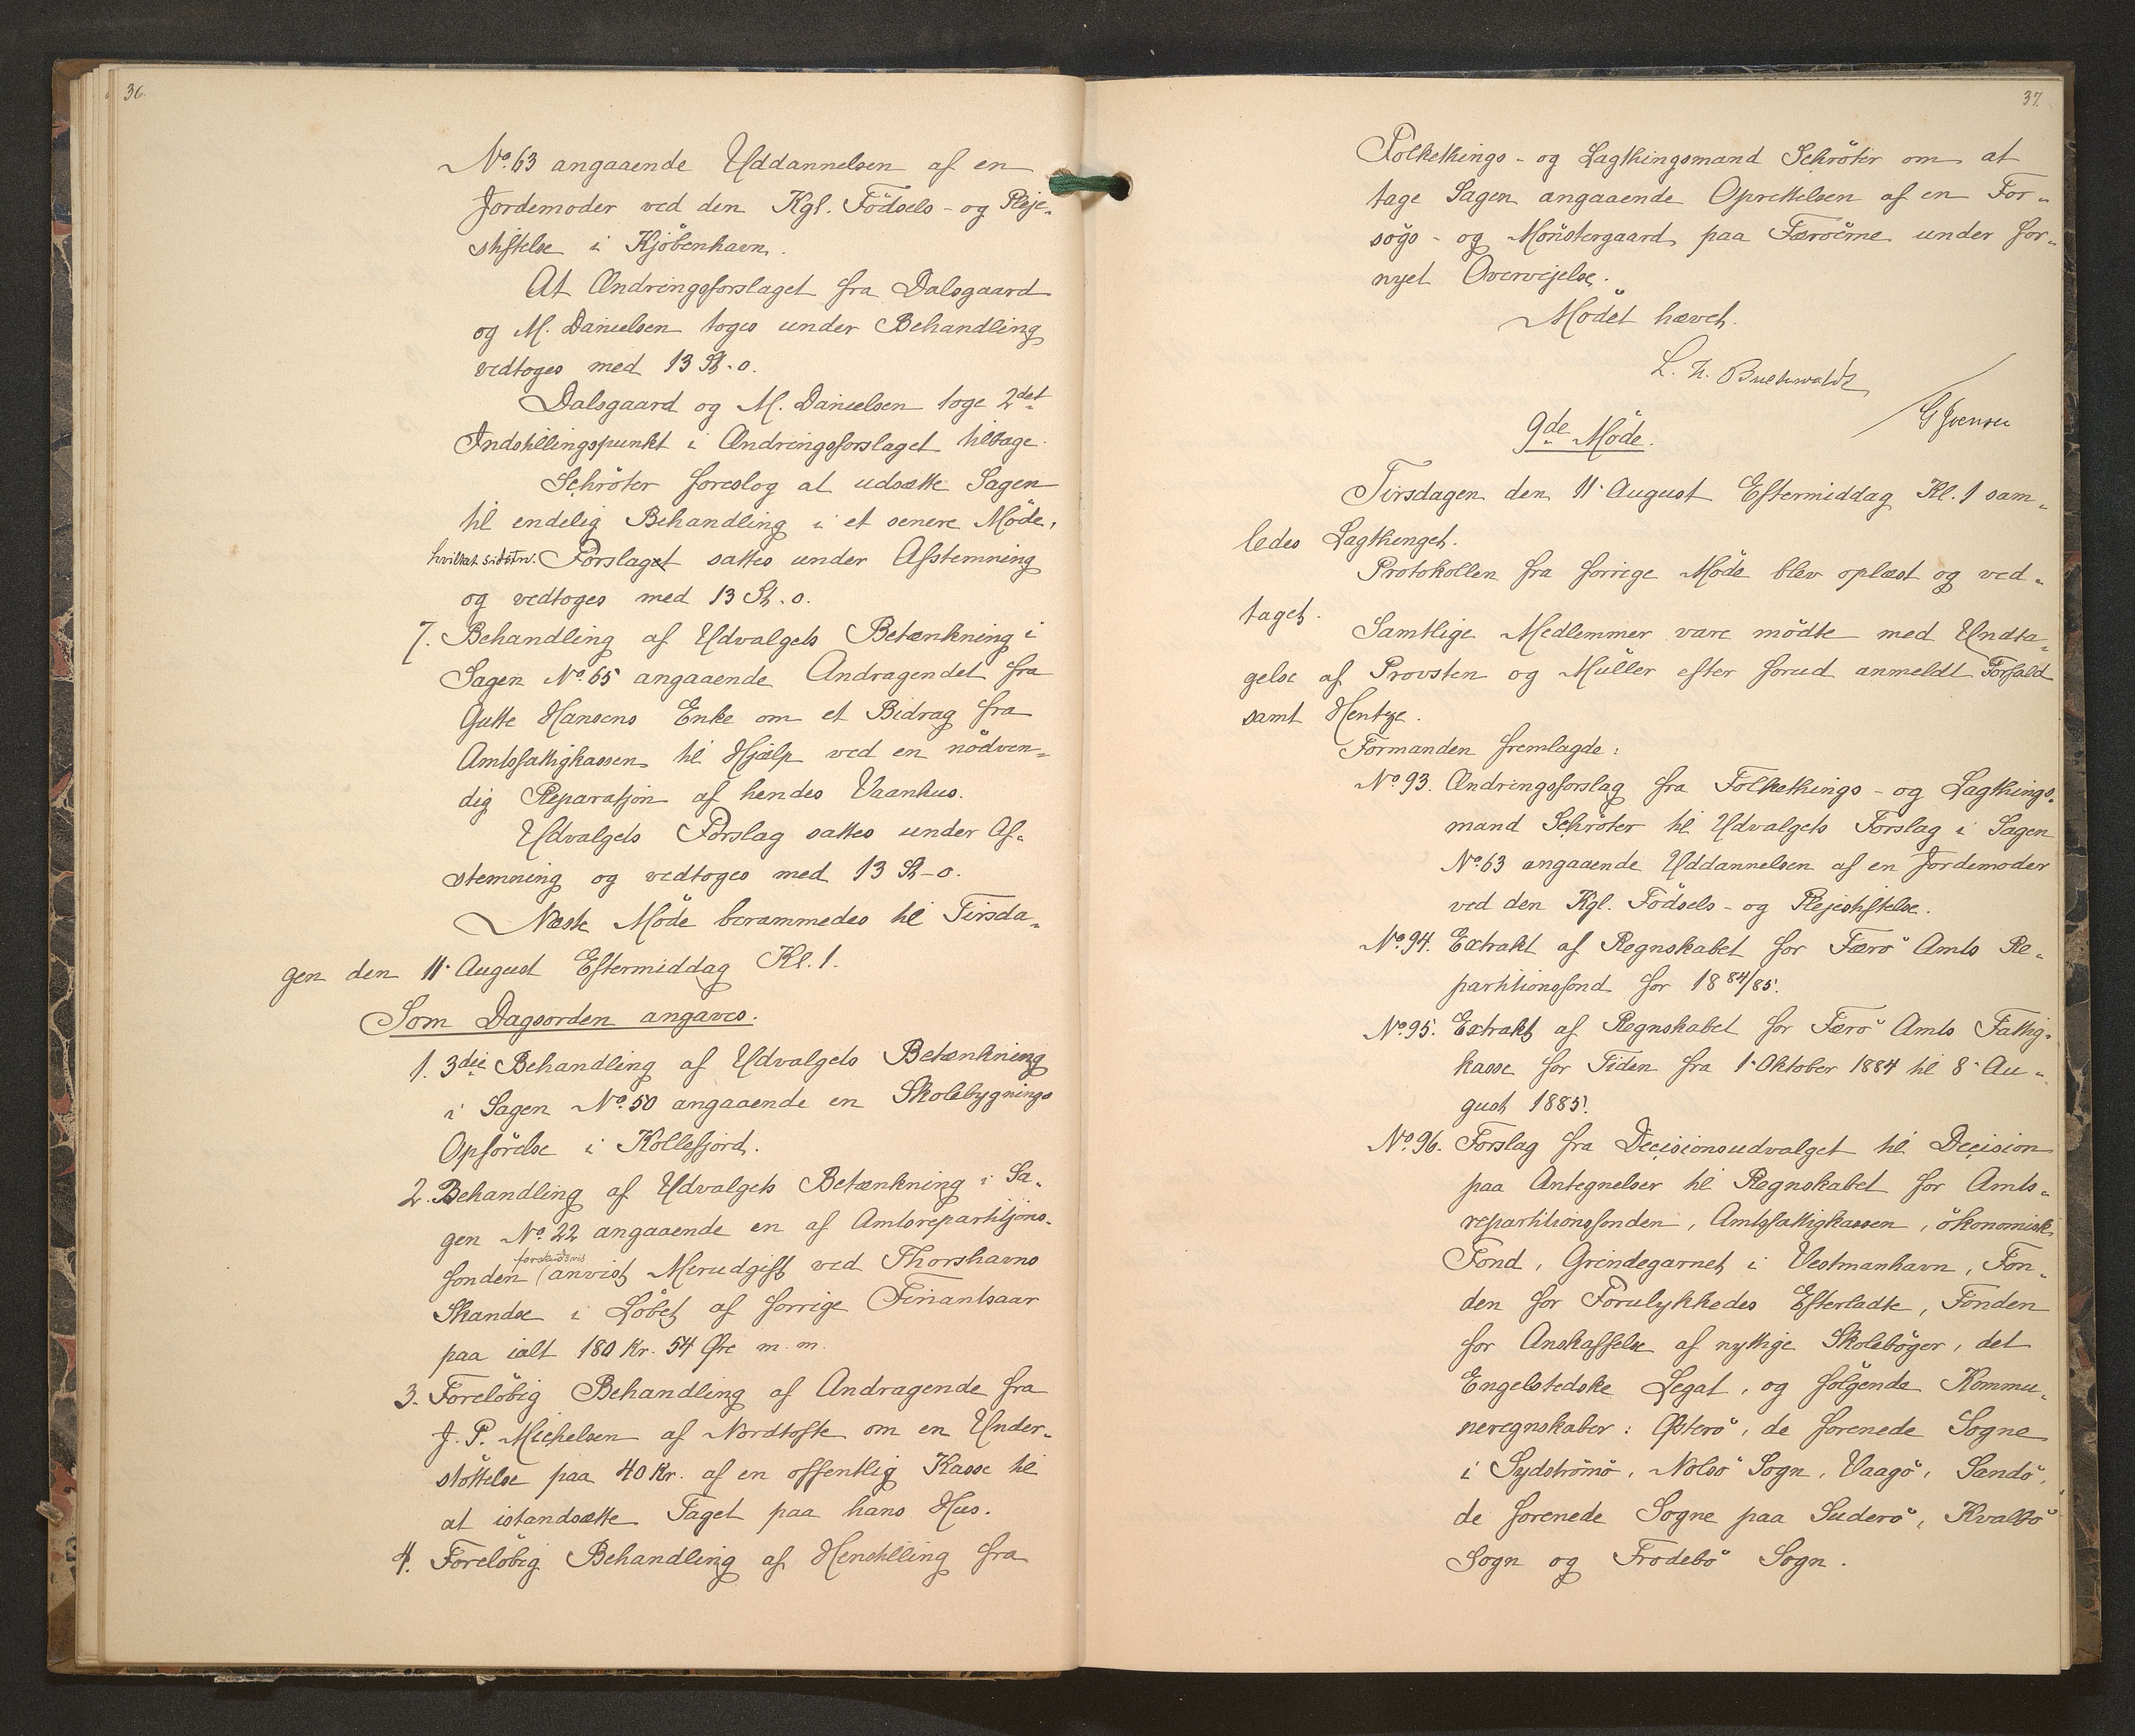 36.
No. 63 angaaende Uddannelsen af en
Jordemoder ved den Kgl. Födsels- og Pleje-
stiftelse i Kjöbenhavn.
At Ændringsforslaget fra Dalsgaard
og M. Danielsen toges under Behandling
vedtoges med 13 St. o.
Dalsgaard og M. Danielsen toge 2det
Indstillingspunkt i Ændringsforslaget tilbage.
Schröter foreslog at udsætte Sagen
til endelig Behandling i et senere Möde,
hvilket sidstn. Forslaget sattes under Afstemning
og vedtoges med 13 St. o.
7. Behandling af Udvalgets Betænkning i
Sagen No. 65 angaaende Andragendet fra
Gutte Hansens Enke om et Bidrag fra
Amtsfattigkassen til Hjælp ved en nödven-
dig Reparatjon af hendes Vaanhus.
Udvalgets Forslag sattes under Af-
stemning og vedtoges med 13 St-o.
Næste Möde berammedes til Tirsda-
gen den 11. August Eftermiddag Kl. 1.
Som Dagsorden angaves.
1. 3die Behandling af Udvalgets Betænkning
i Sagen No. 50 angaaende en Skolebygnings
Opförelse i Kollefjord.
2. Behandling af Udvalgets Betænkning i Sa-
gen No. 22 angaaende en af Amtsrepartitjons-
forskudsvis
fonden anvist Merudgift ved Thorshavns
Skandse i Löbet af forrige Finantsaar
paa ialt 180 Kr. 54 Øre m. m.
3. Foreløbig Behandling af Andragende fra
J. P. Michelsen af Nordtofte om en Under-
støttelse paa 40 Kr. af en offentlig Kasse til
at istandsætte Taget paa hans Hus.
4. Foreløbig Behandling af Henstilling fra
37.
Folkethings- og Lagthingsmand Schröter om at
tage Sagen angaaende Oprettelsen af en For-
søgs- og Mönstergaard paa Færöerne under for-
nyet Overvejelse.
Mödet hævet.
L. Z. Buchwaldt
G Jensen
9de Möde.
Tirsdagen den 11. August Eftermiddag Kl. 1 sam-
ledes Lagthinget.
Protokollen fra forrige Möde blev oplæst og ved-
taget.
Samtlige Medlemmer vare mödte med Undta-
gelse af Provsten og Müller efter forud anmeldt Forfald
samt Hentze.
Formanden fremlagde:
No. 93. Ændringsforslag fra Folkethings- og Lagthings-
mand Schröter til Udvalgets Forslag i Sagen
No. 63 angaaende Uddannelsen af en Jordemoder
ved den Kgl. Födsels- og Plejestiftelse.
No. 94. Extrakt af Regnskabet for Færö Amts Re-
partitionsfond for 1884/85.
No. 95. Extrakt af Regnskabet for Færö Amts Fattig-
kasse for Tiden fra 1. Oktober 1884 til 8. Au-
gust 1885.
No. 96. Forslag fra Decisionsudvalget til Decision
paa Antegnelser til Regnskabet for Amts-
repartitionsfonden, Amtsfattigkassen, ökonomisk
Fond, Grindegarnet i Vestmanhavn, Fon-
den for Forulykkedes Efterladte, Fonden
for Anskaffelse af nyttige Skoleböger, det
Engelstedske Legat, og fölgende Kommu-
neregnskaber: Østerö, de forenede Sogne
i Sydströmö, Nolsö Sogn, Vaagö, Sandö,
de forenede Sogne paa Suderö, Kvalbö
Sogn og Frodebö Sogn.